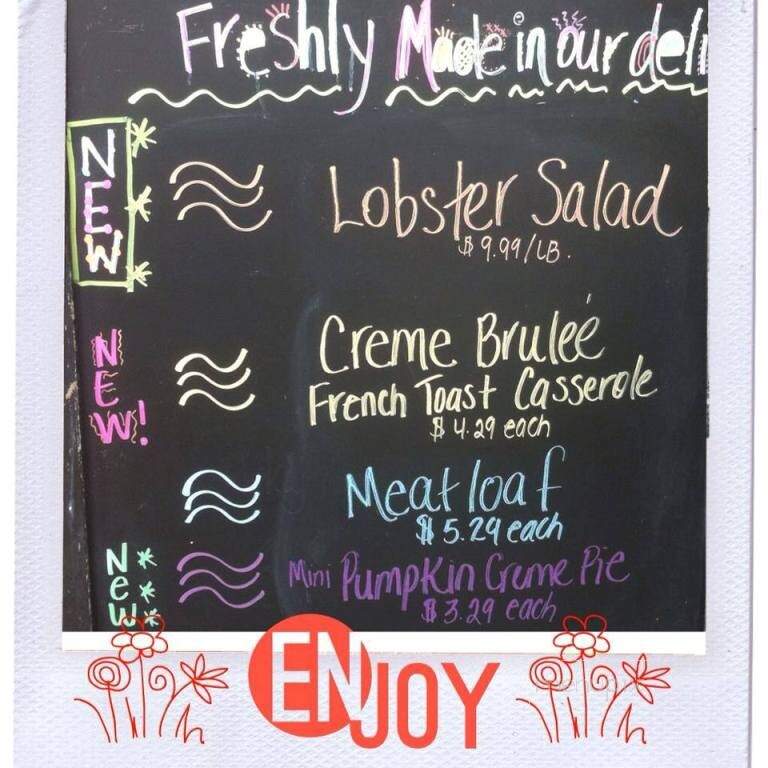 Freshly Made in our deli
NEW
Lobster Salad
$9.99/LB.
NEW!
Creme Bruleé
French Toast Casserole
$4.29 each
Meatloaf
$5.29 each
New
Mini Pumpkin Creme Pie
$3.29 each
ENJOY